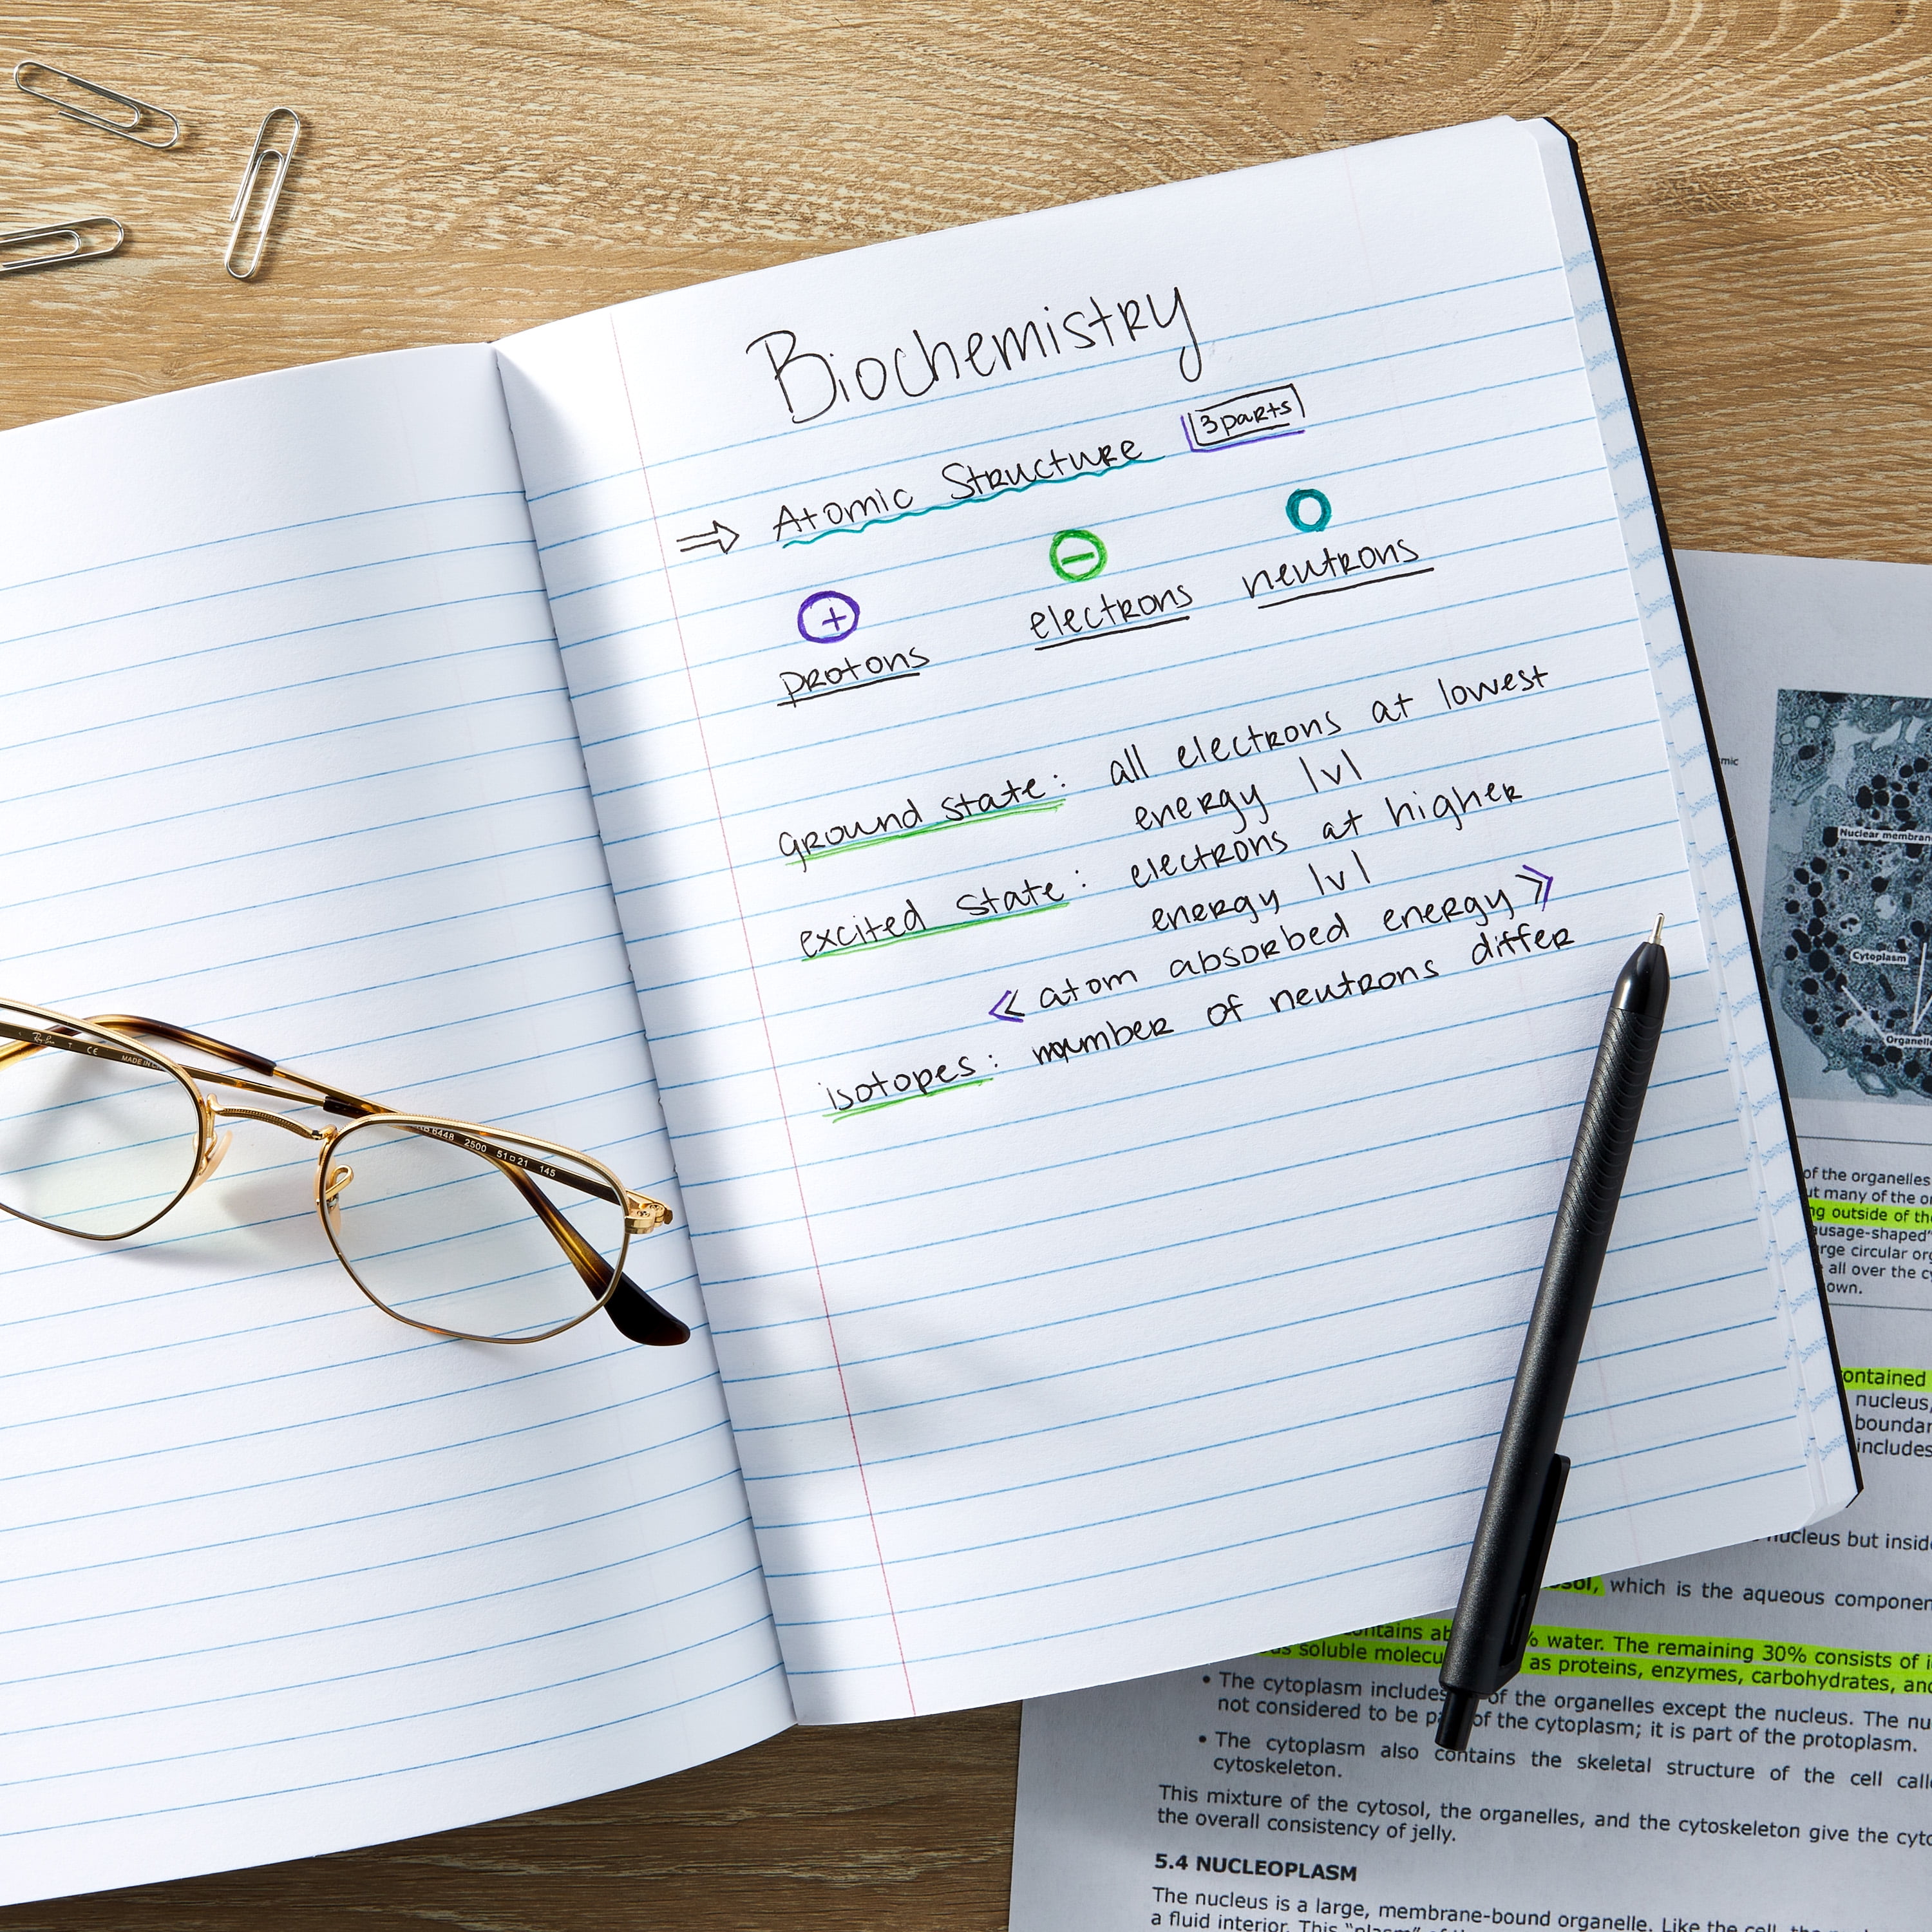 Biochemistry
⇒ Atomic Structure 3 parts
+ − 
protons electrons neutrons
ground state: all electrons at lowest
energy lvl
excited state: electrons at higher
energy lvl
« atom absorbed energy »
isotopes: number of neutrons differ
Ray-Ban CE MADE IN
6448 2500 51□21 145
mic
Nuclear membran
Cytoplasm
Organelle
of the organelles
ut many of the
ng outside of the
ausage-shaped"
rge circular
all over the
own.
ontained
nucleus,
boundar
includes
nucleus but insid
sol, which is the aqueous componen
ntains % water. The remaining 30% consists of
soluble molecu as proteins, enzymes, carbohydrates, and
• The cytoplasm includes of the organelles except the nucleus. The nu
not considered to be pa of the cytoplasm; it is part of the protoplasm.
• The cytoplasm also contains the skeletal structure of the cell calle
cytoskeleton.
This mixture of the cytosol, the organelles, and the cytoskeleton give the cyto
the overall consistency of jelly.
5.4 NUCLEOPLASM
The nucleus is a large, membrane-bound organelle. Like the cell, the
a fluid interior. This "plasm"